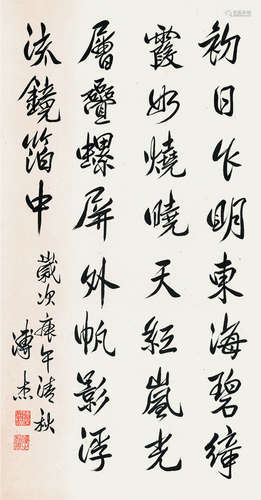 初日乍明東海碧絳
霞如燒曉天紅嵐光
層疊螺屏外帆影浮
流鏡箔中
歲次庚午清秋
溥杰